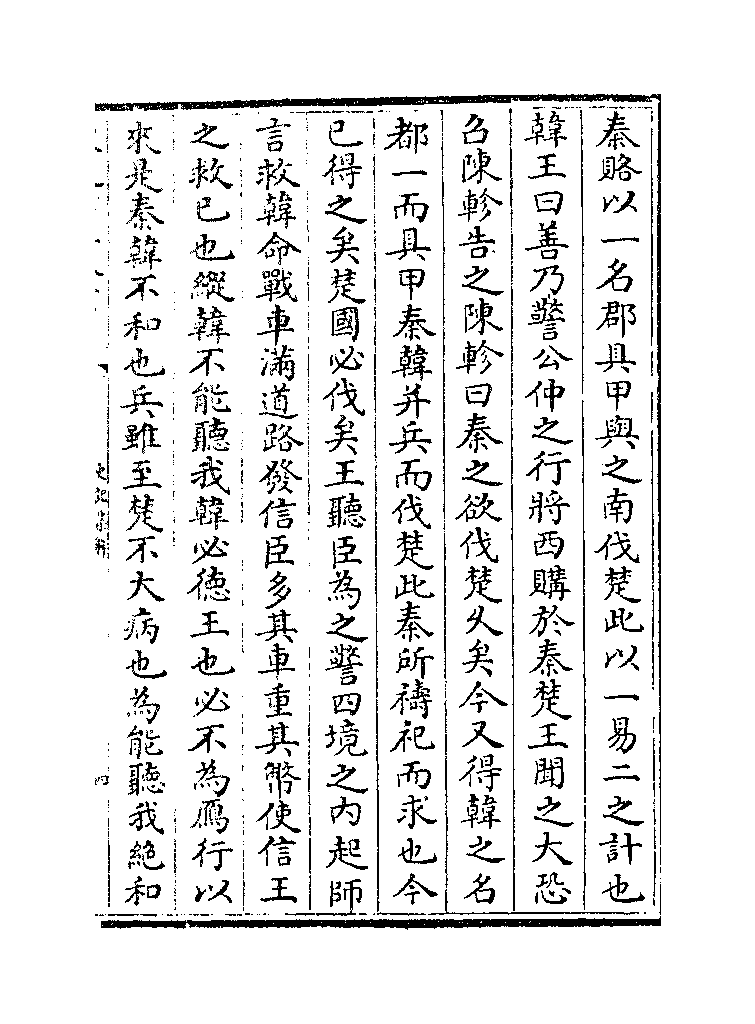 秦賂以一名郡具甲與之南伐楚此以一易二之計也
韓王曰善乃警公仲之行將西購於秦楚王聞之大恐
召陳軫告之陳軫曰秦之欲伐楚久矣今又得韓之名
都一而具甲秦韓并兵而伐楚此秦所禱祀而求也今
已得之矣楚國必伐矣王聽臣為之警四境之内起師
言救韓命戰車滿道路發信臣多其車重其幣使信王
之救已也縱韓不能聽我韓必徳王也必不為鴈行以
來是秦韓不和也兵雖至楚不大病也為能聽我絶和
史記
四